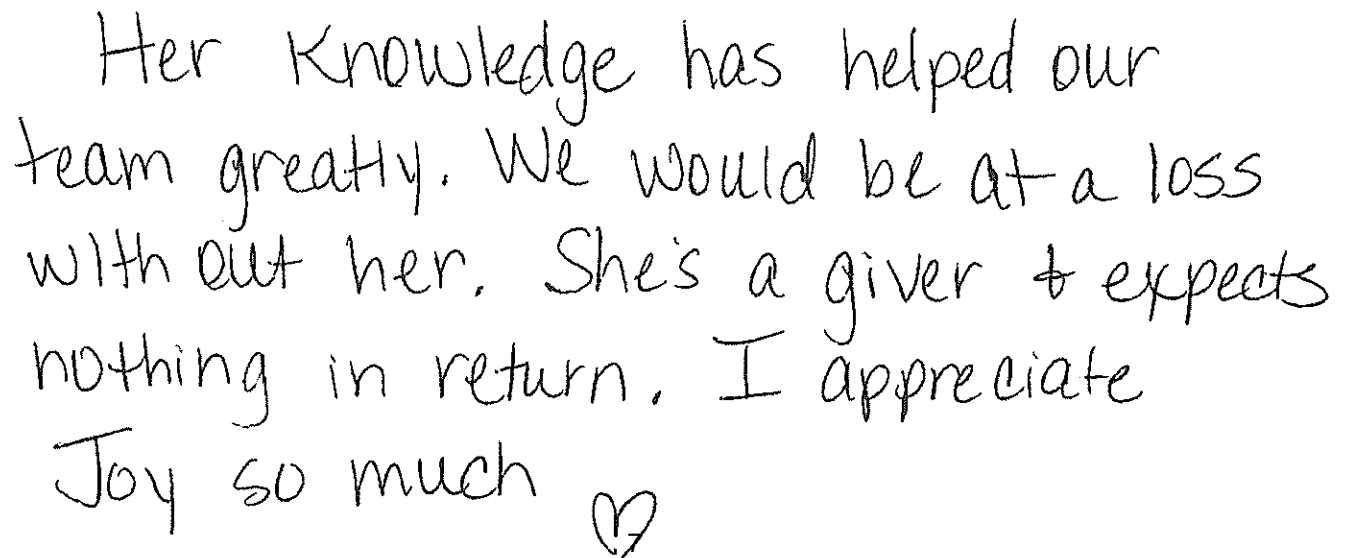 Her Knowledge has helped our
team greatly. We would be at a loss
with out her. She's a giver & expects
nothing in return. I appreciate
Joy so much ♡